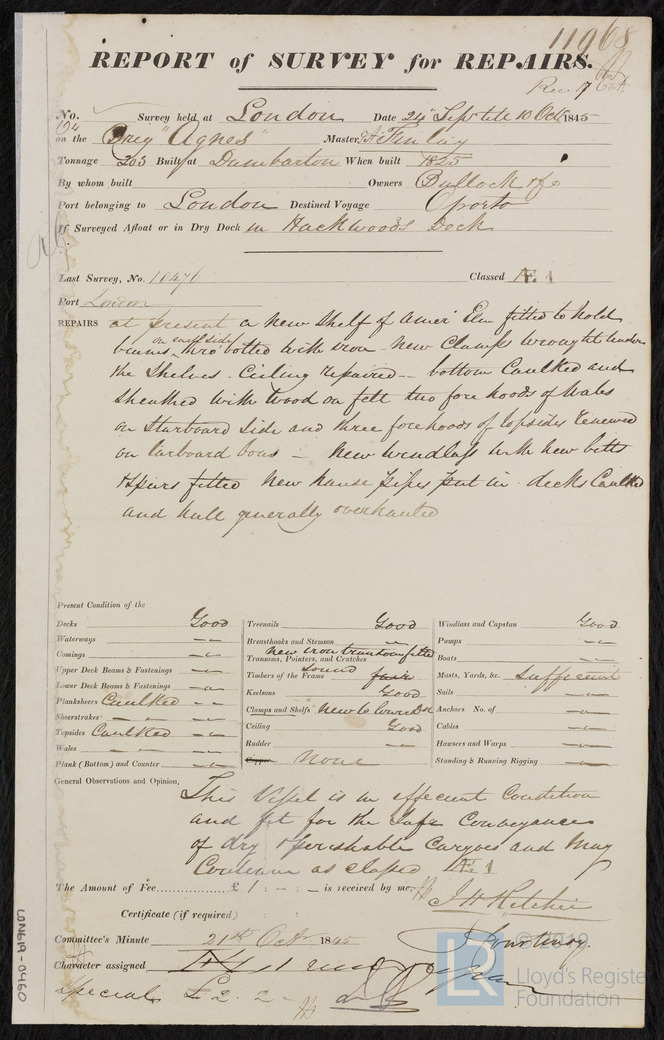 11968
REPORT of SURVEY for REPAIRS.
Rec 17 Oct
No. Survey held at London Date 24 Sept til 10 Oct 1845
on the Brig "Agnes" Master Finlay
Tonnage 203 Built at Dumbarton When built 1825
By whom built Owners Bullock & Co
Port belonging to London Destined Voyage Oporto
If Surveyed Afloat or in Dry Dock in Hackwood's Dock
Last Survey, No. 10476 Classed Æ 1
Port London
REPAIRS at present a new Shelf of Amer Elm fitted to hold
beams on each side, bolted with iron new Clamps wrought under
the Shelves. Ceiling repaired - bottom Caulked and
Sheathed with Wood on felt two fore hoods of Wales
on Starboard Side and three forehoods of topsides renewed
on larboard bow - New windlass with new bitts
& spurs fitted New hause pipes put in decks Caulked
and hull generally overhauled
Present Condition of the
Decks Good Treenails Good Windlass and Capstan Good
Waterways Breasthooks and Stemson Pumps
Comings new iron transom fitted Boats
Upper Deck Beams & Fastenings Transoms, Pointers, and Crutches sound Masts, Yards, &c. sufficient
Lower Deck Beams & Fastenings Timbers of the Frame fair Sails
Planksheers Caulked Keelsons Good Anchors No. of
Sheerstrakes Clamps and Shelfs New to lower Dk Cables
Topsides Caulked Ceiling Good Hawsers and Warps
Wales Rudder Standing & Running Rigging
Plank (Bottom) and Counter Copper None
General Observations and Opinion, This Vessel is in efficient Condition
and fit for the Safe Conveyance
of dry & perishable Cargoes and May
Continue as classed Æ 1
The Amount of Fee £ 1 : - : - is received by me,
J H Ritchie
Certificate (if required)
Committee's Minute 21st Oct 1845
J Courtenay
Character assigned
special £2. 2 -
LON619-0460
© 2019
LR
Lloyd's Register
Foundation